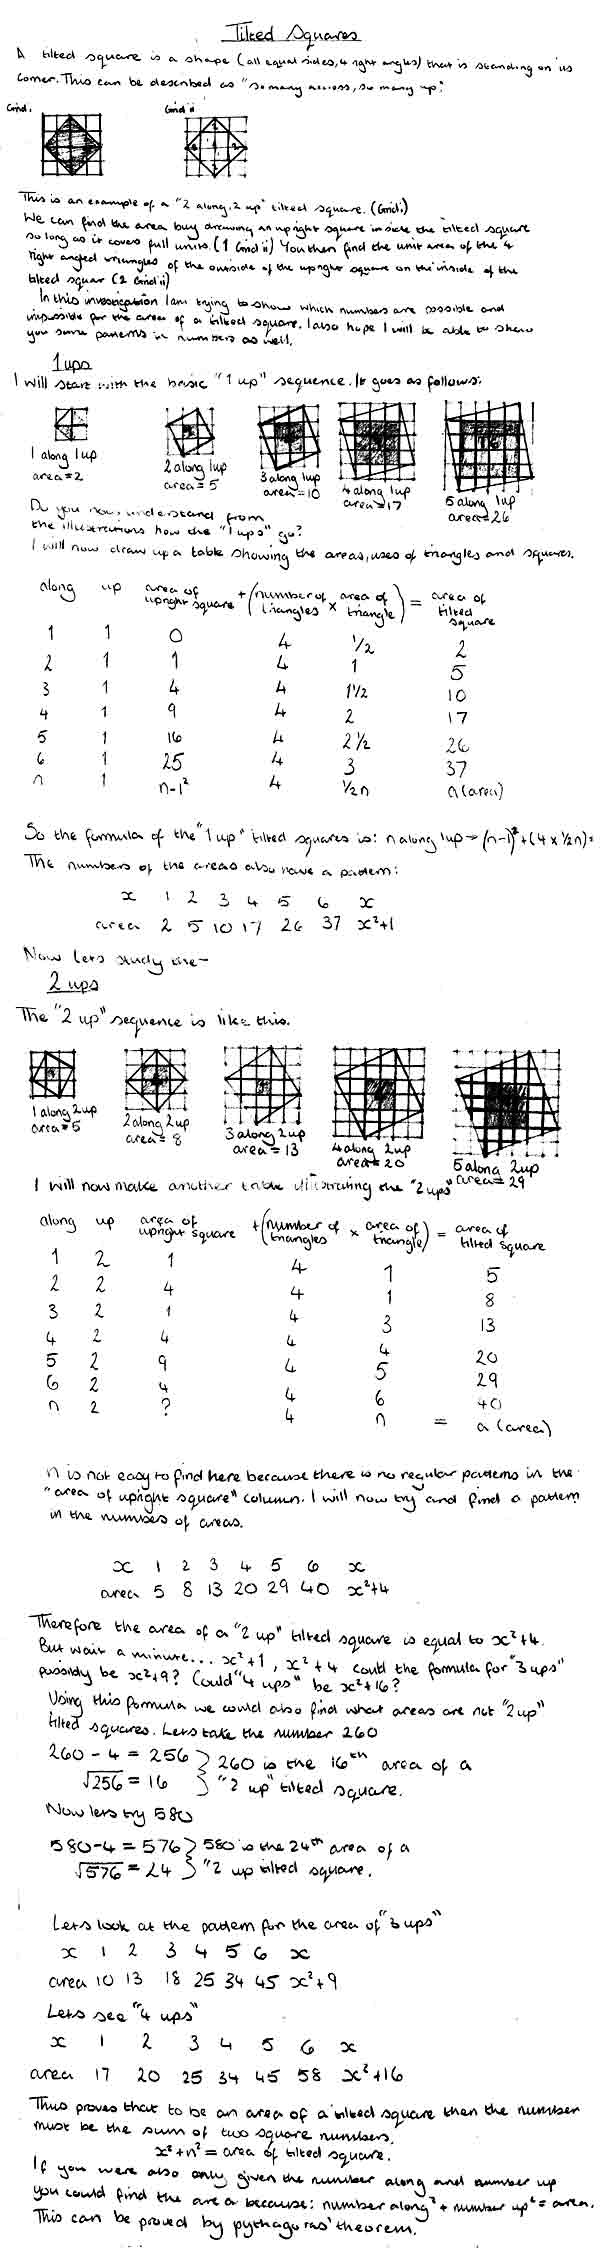 Tilted Squares
A tilted square is a shape (all equal sides, 4 right angles) that is standing on its
corner. This can be described as "so many across, so many up".
Grid i
Grid ii
This is an example of a "2 along, 2 up" tilted square. (Grid i)
We can find the area buy drawing an upright square inside the tilted square
so long as it covers full units. (1 Grid ii) You then find the unit area of the 4
right angled triangles of the outside of the upright square on the inside of the
tilted squar (2 Grid ii)
In this investigation I am trying to show which numbers are possible and
impossible for the area of a tilted square. I also hope I will be able to show
you some patterns in numbers as well.
1 ups
I will start with the basic "1 up" sequence. It goes as follows:
1 along 1up
area=2
2 along 1up
area=5
3 along 1up
area=10
4 along 1up
area=17
16
5 along 1up
area=26
Do you now understand from
the illustrations how the "1 ups" go?
I will now draw up a table showing the areas, uses of triangles and squares.
along up area of upright square + (number of triangles × area of triangle) = area of tilted square
1 1 0 4 ½ 2
2 1 1 4 1 5
3 1 4 4 1½ 10
4 1 9 4 2 17
5 1 16 4 2½ 26
6 1 25 4 3 37
n 1 n-1² 4 ½n a (area)
So the formula of the "1 up" tilted squares is: n along 1up → (n-1)² + (4 x ½n) =
The numbers of the areas also have a pattern:
x 1 2 3 4 5 6 x
area 2 5 10 17 26 37 x²+1
Now lets study the-
2 ups
The "2 up" sequence is like this.
1 along 2up
area=5
2 along 2up
area=8
3 along 2up
area=13
4 along 2up
area=20
5 along 2up
area=29
I will now make another table illustrating the "2 ups"
along up area of upright square + (number of triangles × area of triangle) = area of tilted square
1 2 1 4 1 5
2 2 4 4 1 8
3 2 1 4 3 13
4 2 4 4 4 20
5 2 9 4 5 29
6 2 4 4 6 40
n 2 ? 4 n = a (area)
n is not easy to find here because there is no regular patterns in the
"area of upright square" column. I will now try and find a pattern
in the numbers of areas.
x 1 2 3 4 5 6 x
area 5 8 13 20 29 40 x²+4
Therefore the area of a "2 up" tilted square is equal to x²+4.
But wait a minute... x²+1, x²+4 could the formula for "3 ups"
possibly be x²+9? Could "4 ups" be x²+16?
Using this formula we could also find what areas are not "2 up"
tilted squares. Lets take the number 260
260 - 4 = 256 } 260 is the 16th area of a
√256 = 16 } "2 up" tilted square.
Now lets try 580
580-4 = 576 } 580 is the 24th area of a
√576 = 24 } "2 up tilted square.
Lets look at the pattern for the area of "3 ups"
x 1 2 3 4 5 6 x
area 10 13 18 25 34 45 x²+9
Lets see "4 ups"
x 1 2 3 4 5 6 x
area 17 20 25 34 45 58 x²+16
Thus proves that to be an area of a tilted square then the number
must be the sum of two square numbers.
x²+n² = area of tilted square.
If you were also only given the number along and number up
you could find the area because: number along² + number up² = area.
This can be proved by pythagoras' theorem.